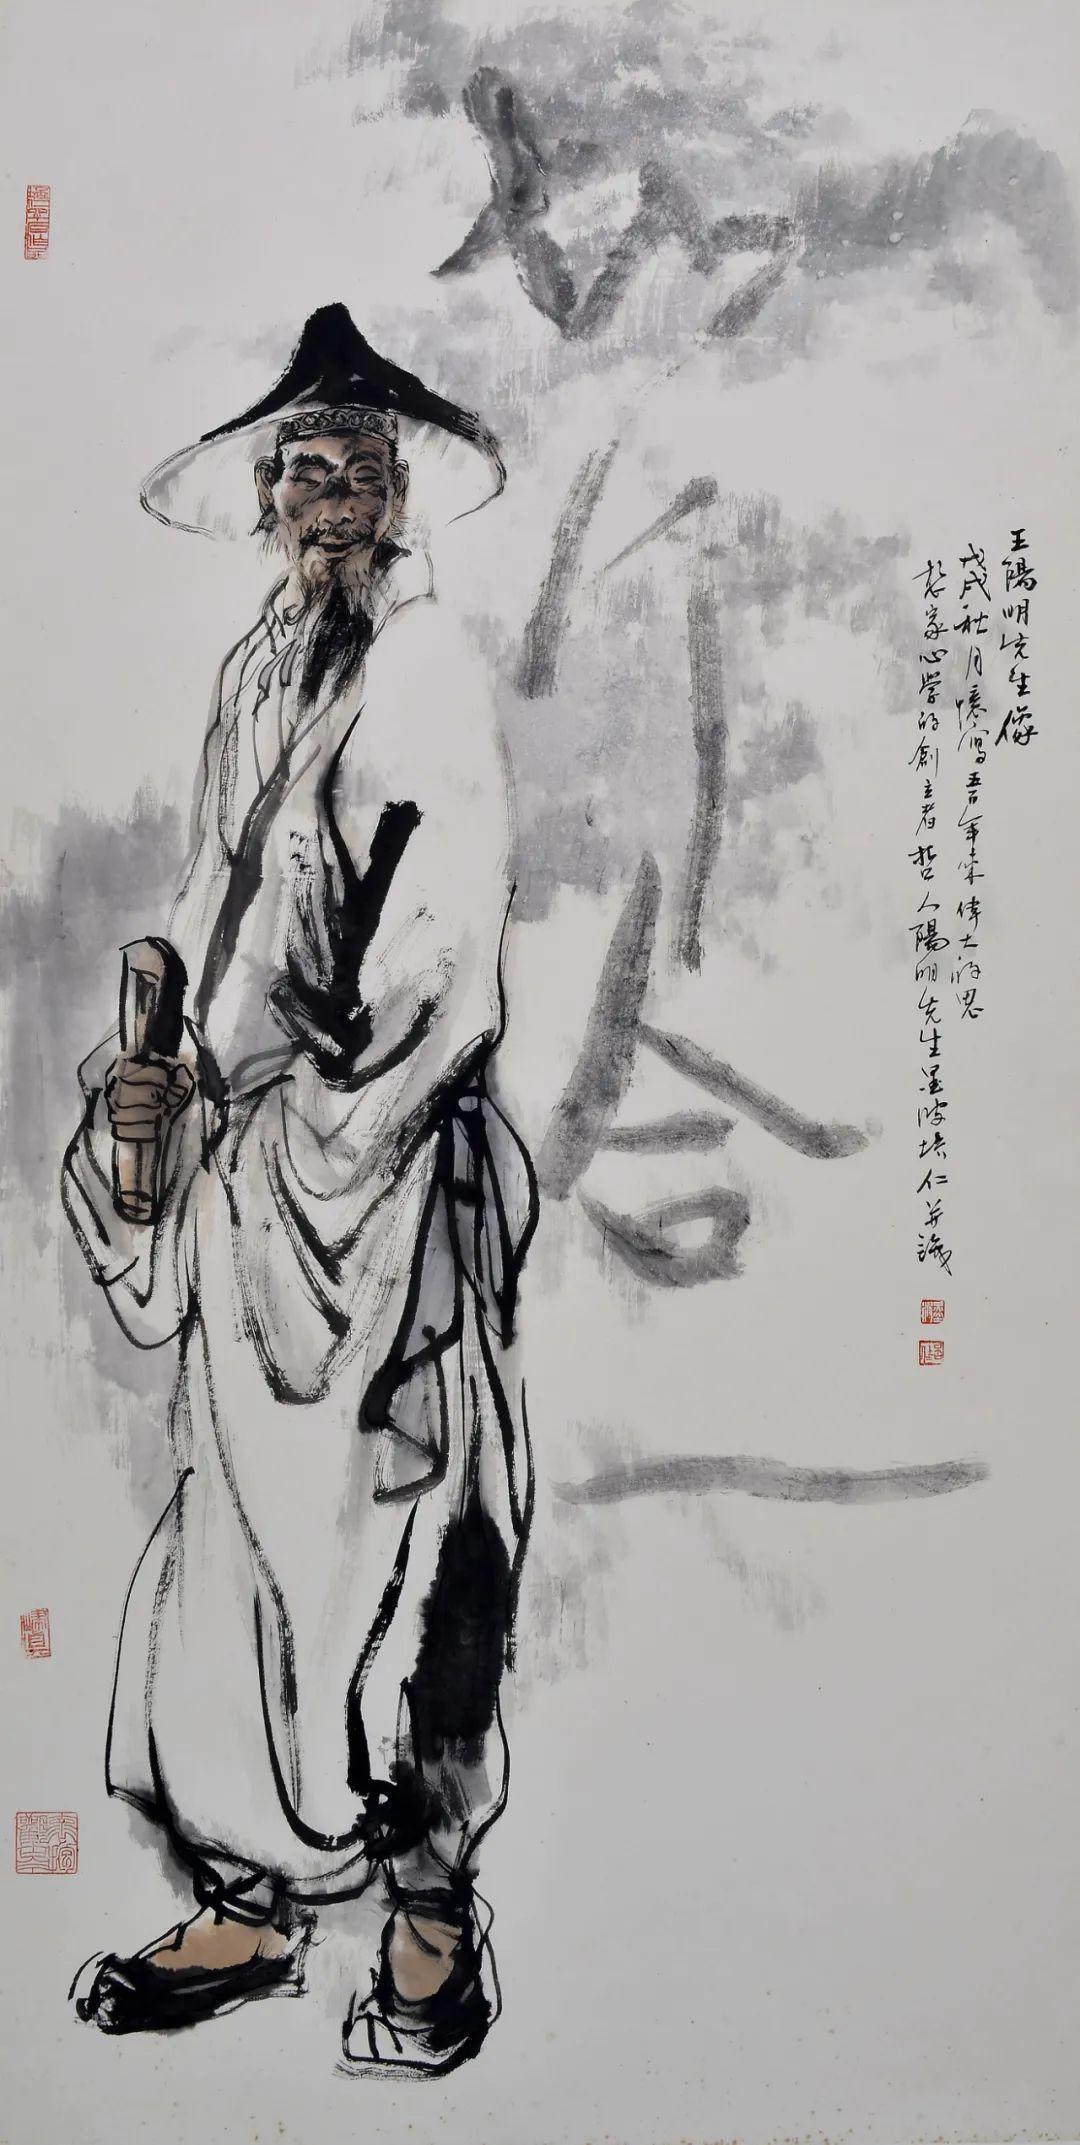 王陽明先生像
戊戌秋月憶寫五百年來偉大的思
想家心學的創立者哲人陽明先生培仁并識
知行合一